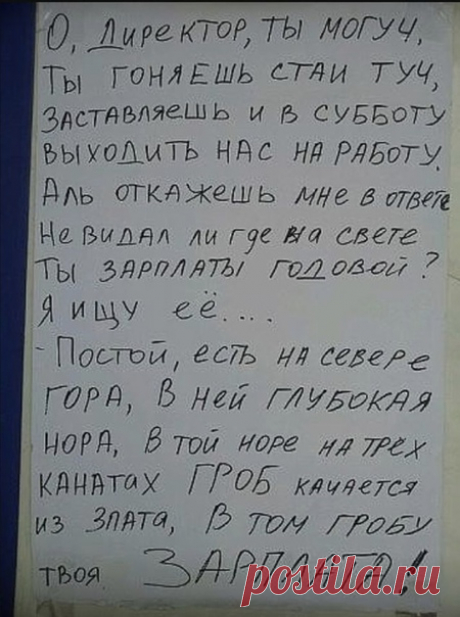 О, Директор, ты могуч,
Ты гоняешь стаи туч,
Заставляешь и в субботу
выходить нас на работу.
Аль откажешь мне в ответе
Не видал ли где на свете
Ты зарплаты годовой?
Я ищу её....
- Постой, есть на севере
гора, в ней глубокая
нора, в той норе на трёх
канатах ГРОБ качается
из злата, в том гробу
твоя ЗАРПЛАТА!
postila.ru